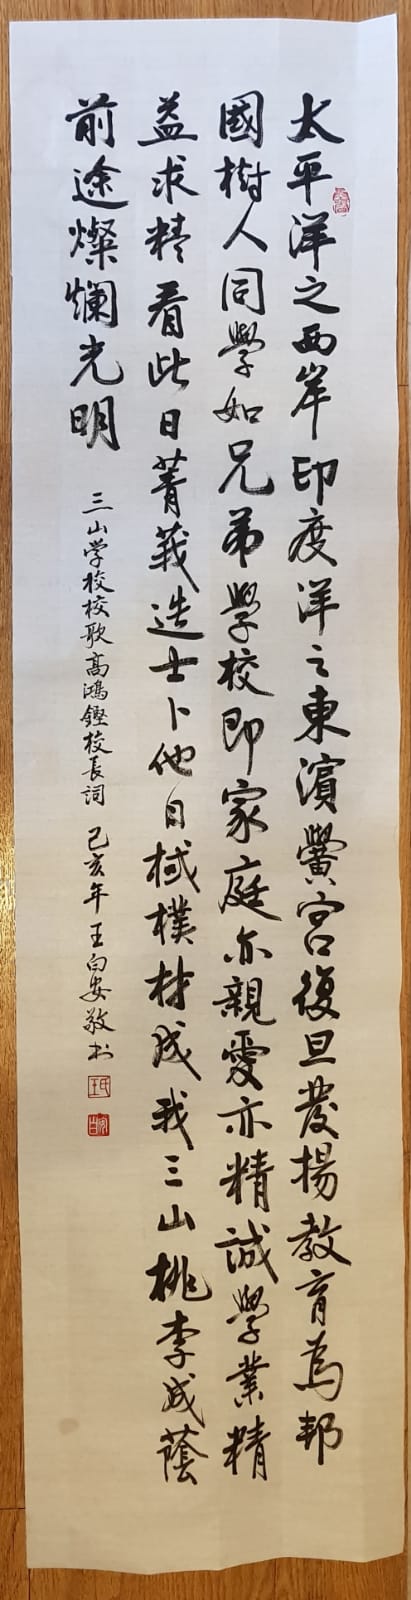 太平洋之西岸印度洋之東濱黌宮復旦發揚教育為邦
國樹人同學如兄弟學校即家庭亦親愛亦精誠學業精
益求精看此日菁莪造士卜他日棫樸材成我三山桃李成蔭
前途燦爛光明
三山学校校歌高鴻鏗校長詞 己亥年王白安敬書